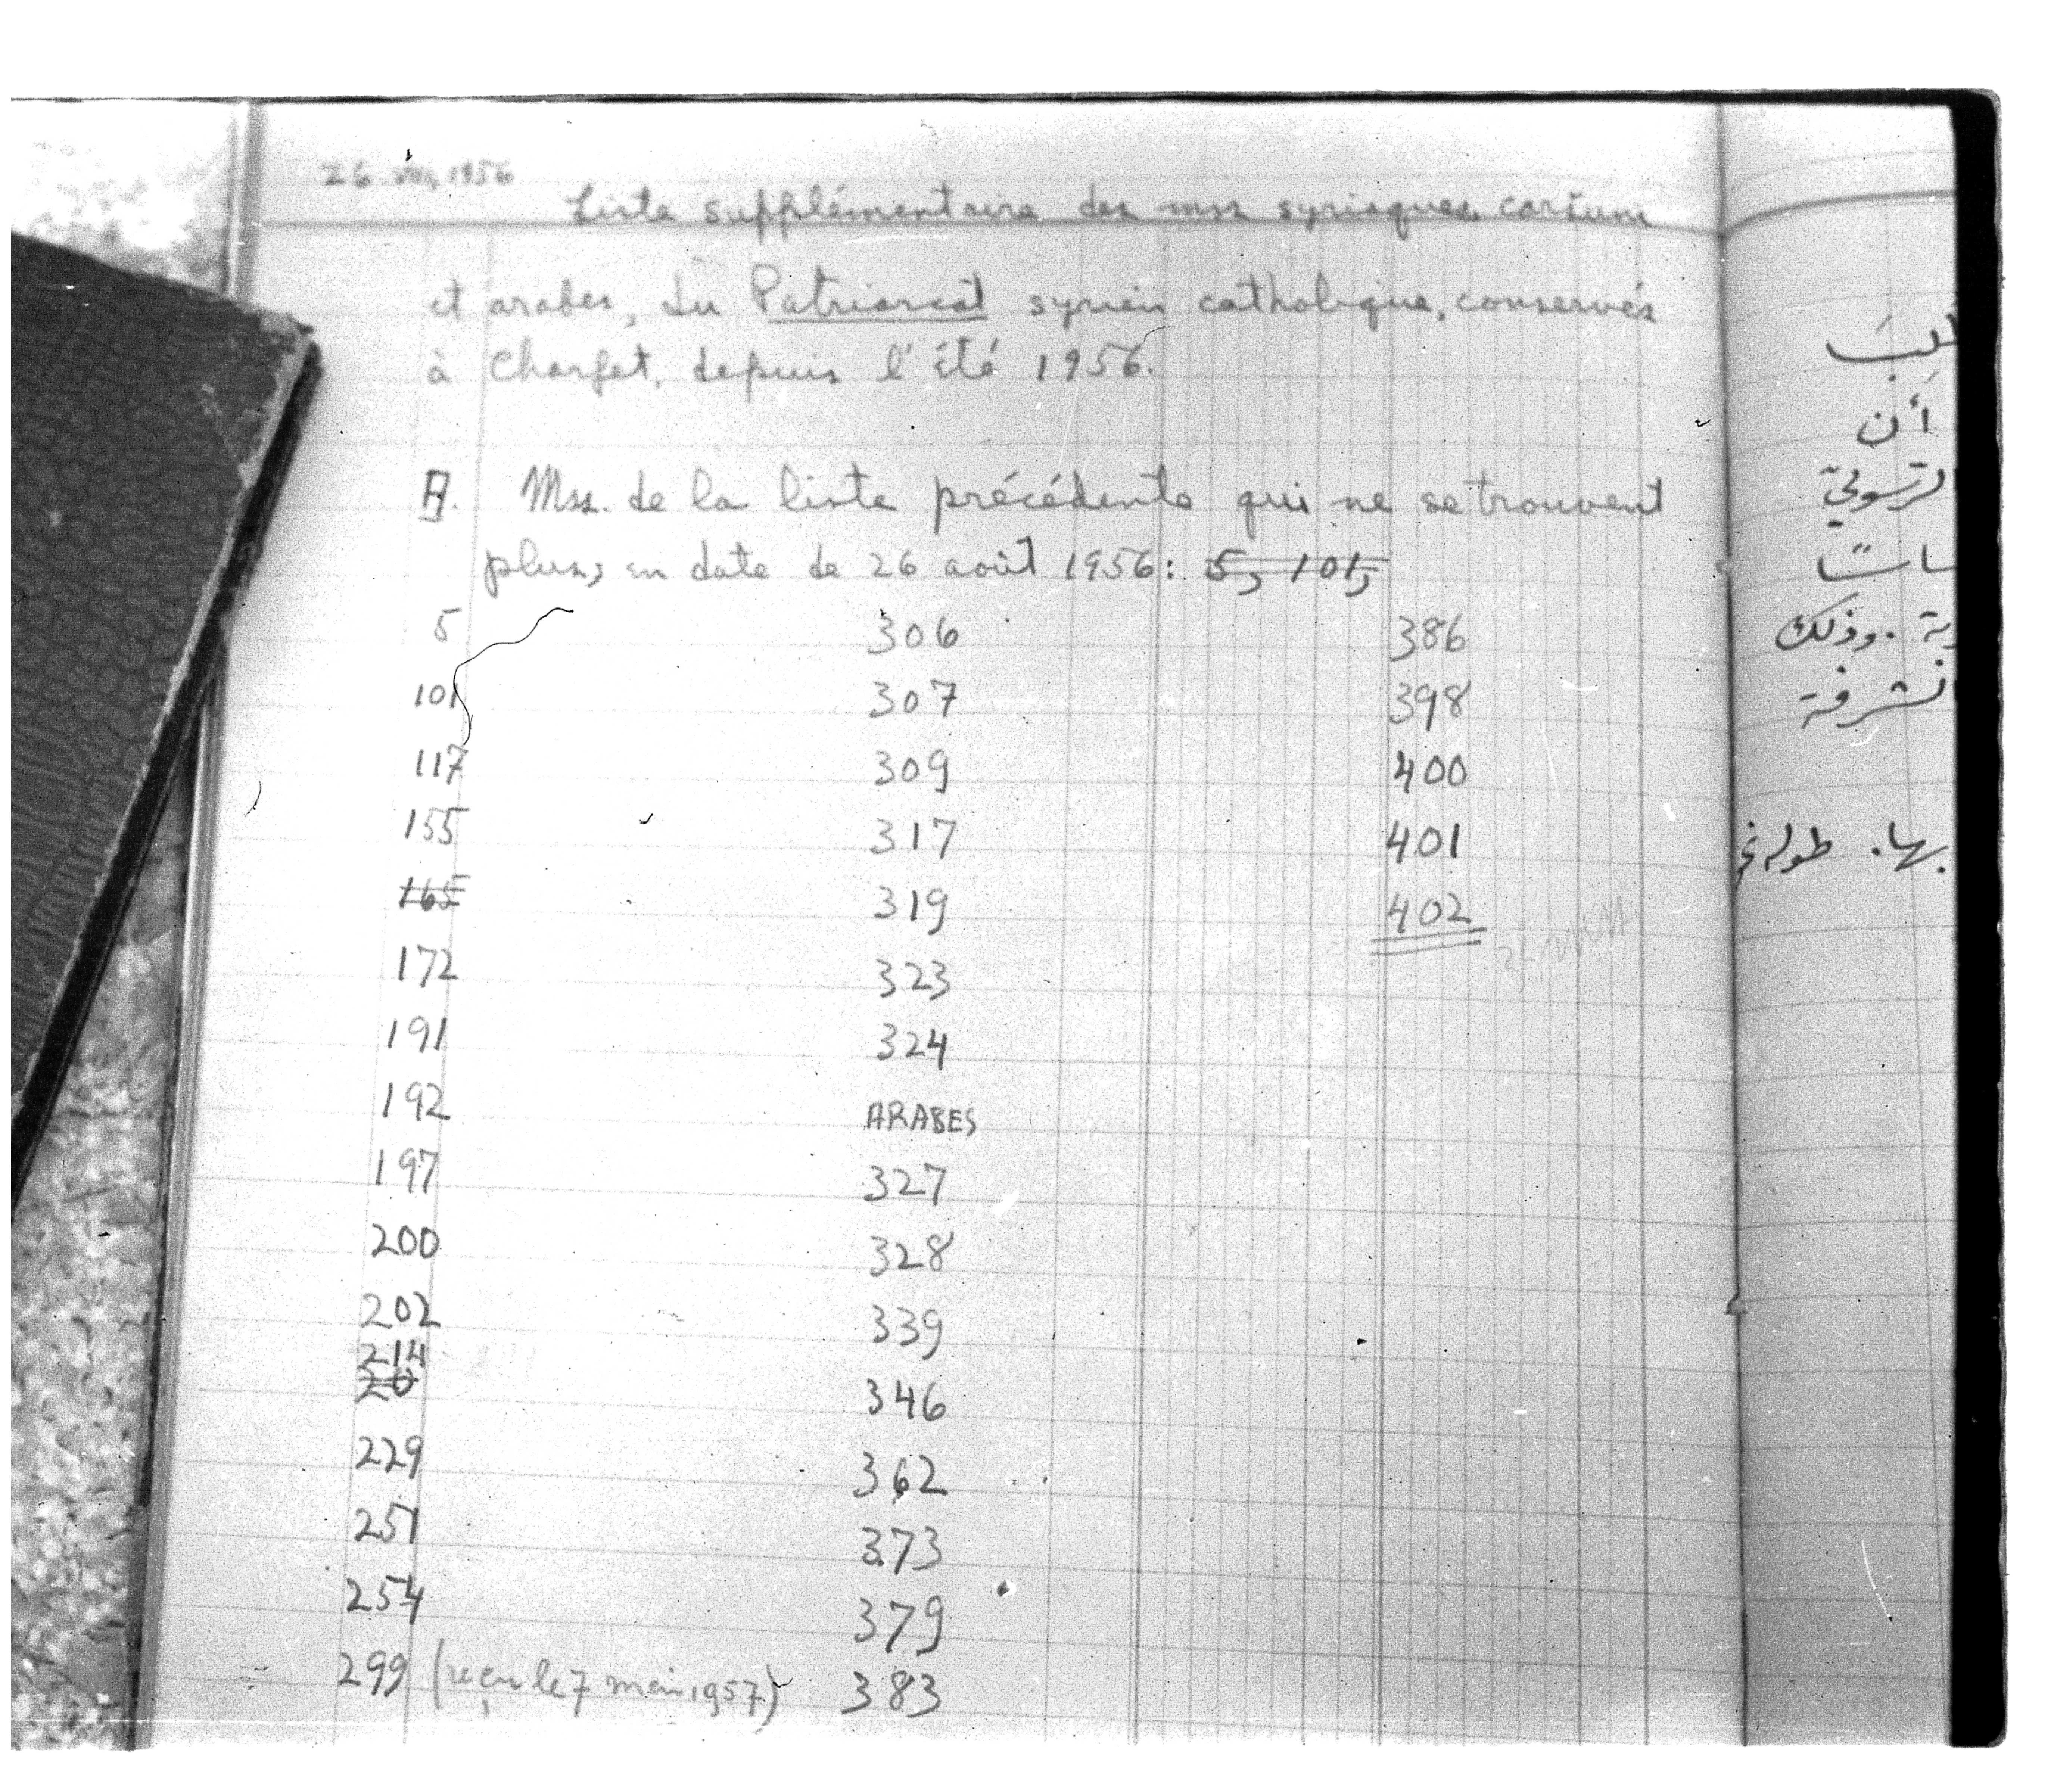 26 VIII, 1956
Liste supplémentaire des mss syriaques, caršuni
et arabes, du Patriarcat syrien catholique, conservés
à Charfet, depuis l'été 1956.
A. Mss. de la liste précédente qui ne se trouvent
plus, en date de 26 août 1956: 5, 101,
5
101
117
155
165
172
191
192
197
200
202
214
20
229
251
254
299 (reçu le 7 mai 1957)
306
307
309
317
319
323
324
ARABES
327
328
339
346
362
373
379
383
386
398
400
401
402
أن
ية . وذلك
بها. طوله